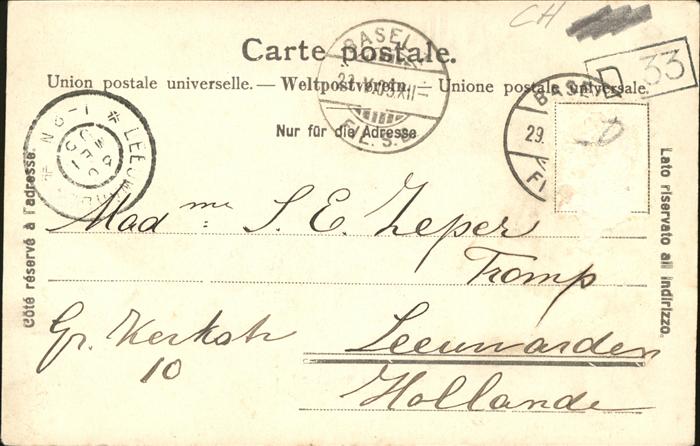 CH
Carte postale.
Union postale universelle. — Weltpostverein. — Unione postale universale.
Nur für die Adresse
BASEL
F.L.S.B.
BASEL
29.
FI
D 33
LEEUW
N 8-1
Côté réservé à l'adresse.
Lato riservato all indirizzo.
Madme: S. E. Zeper
Tromp
Gr. Kerkstr
10
Leeuwarden
Hollande